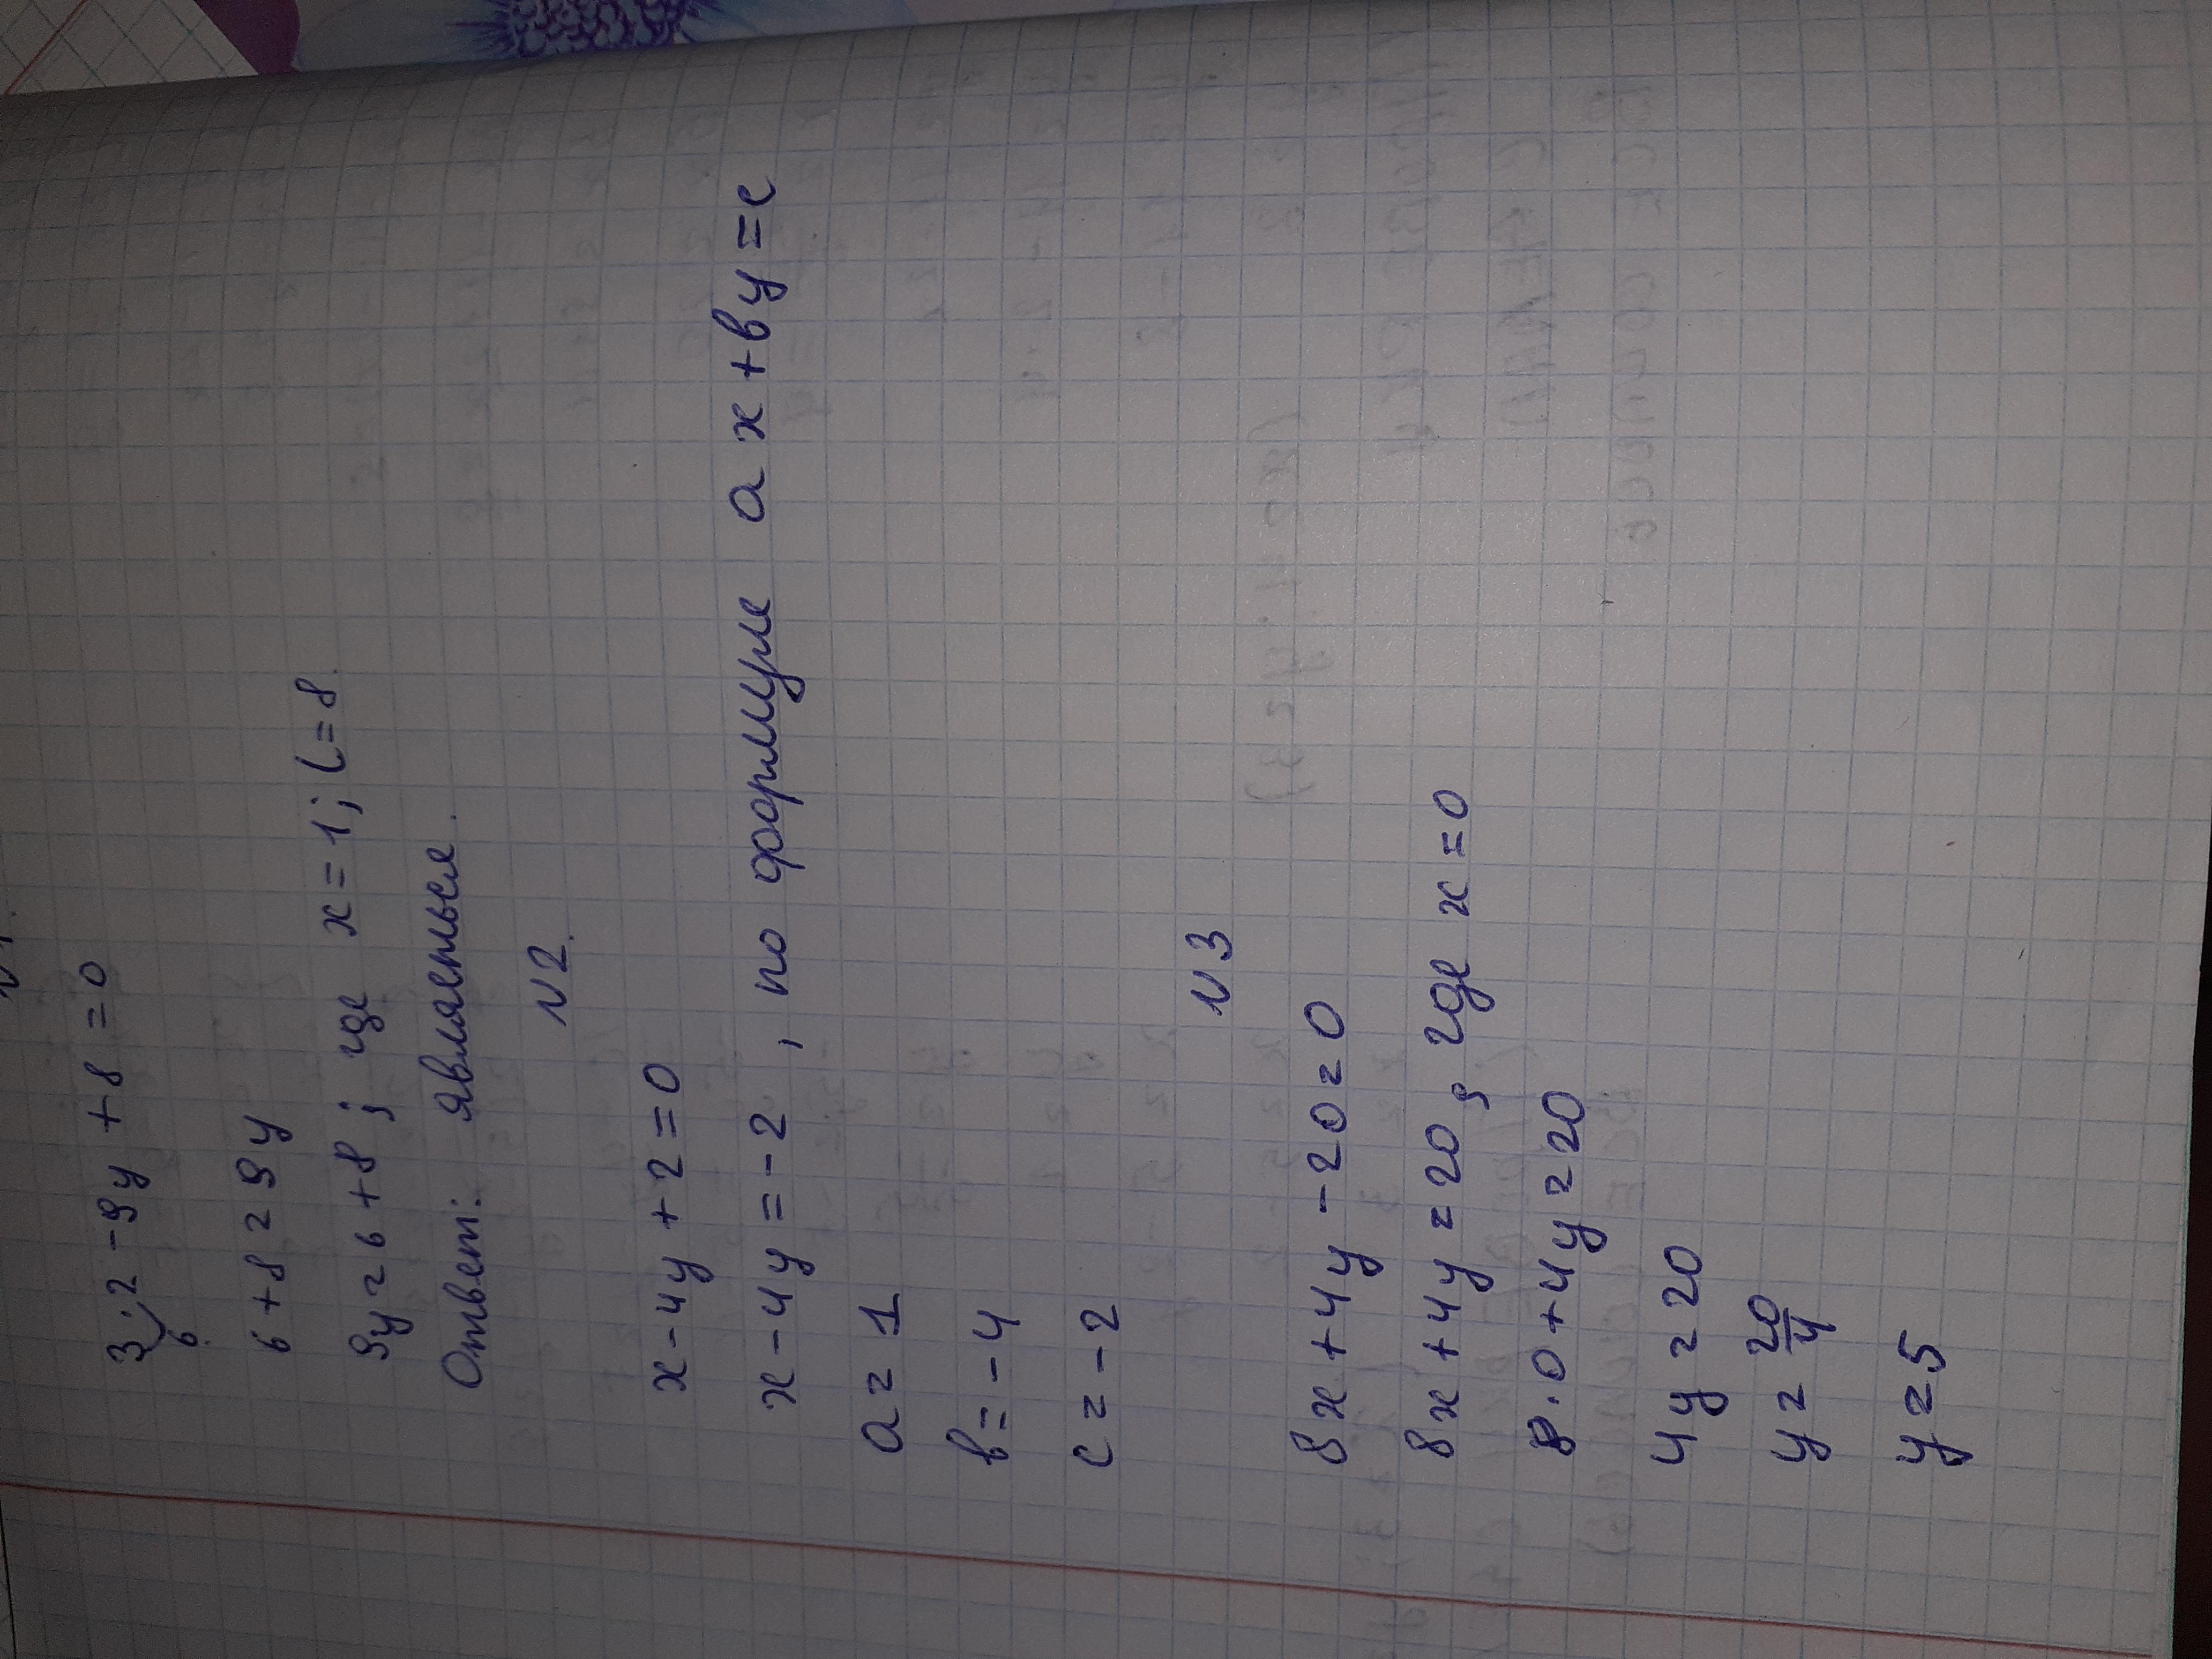 3 · 2 - 9y + 8 = 0
6
6 + 8 = 9y
9y = 6 + 8 ; где x = 1; C = 8.
Ответ: являеться.
N2.
x - 4y + 2 = 0
x - 4y = -2 , по формуле ax + by = c
a = 1
b = -4
c = -2
N3
8x + 4y - 20 = 0
8x + 4y = 20, где x = 0
8 · 0 + 4y = 20
4y = 20
y = 20/4
y = 5